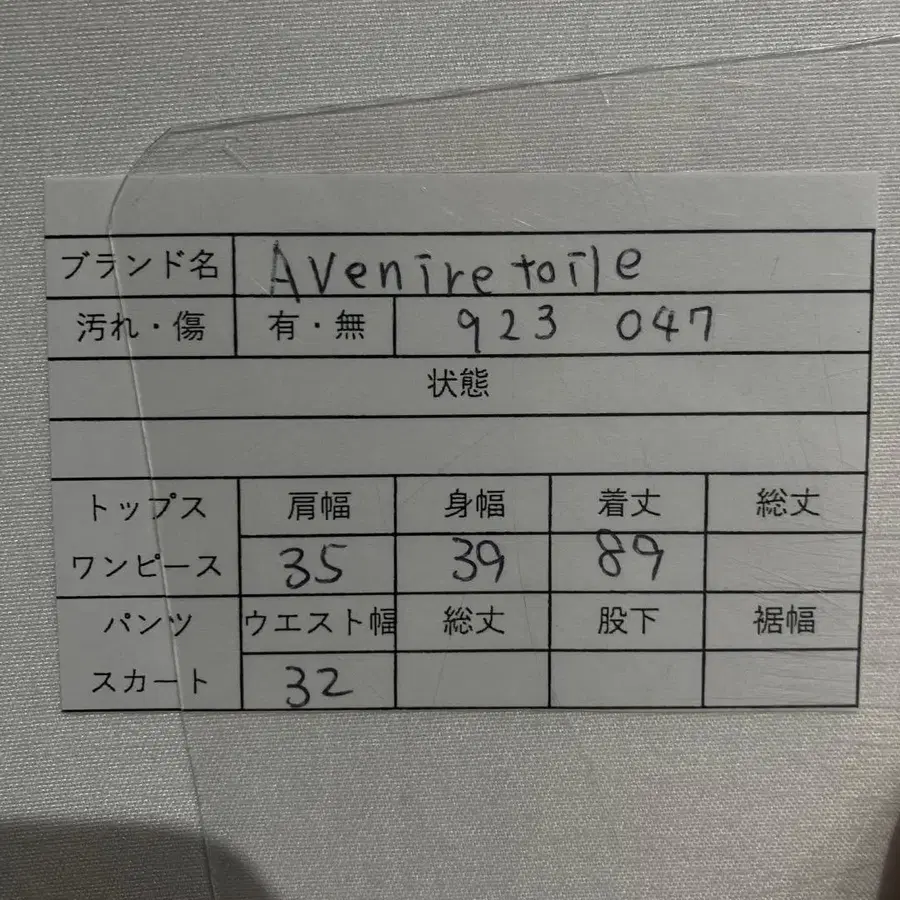 ブランド名 Avenir etoile
汚れ・傷 有・無 923 047
状態
トップス 肩幅 身幅 着丈 総丈
ワンピース 35 39 89
パンツ ウエスト幅 総丈 股下 裾幅
スカート 32